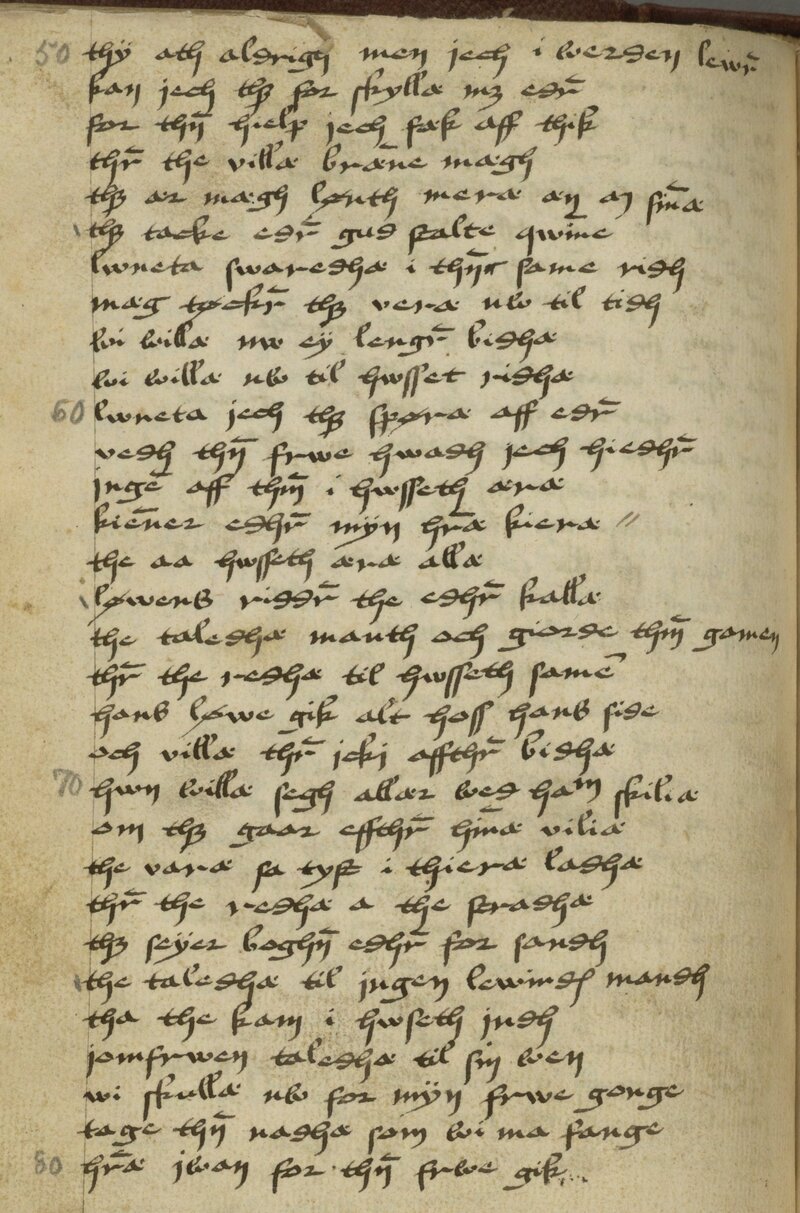 50 thÿ ath aldrigh men jech i werden lewr̄
kan jech thꝫ for skyllæ mꝫ edr̄
for thn̄ hielp jech fæk aff thik
thr̄ the villæ bræn̄e mægh
thꝫ ær mægh lønth meræ æn sin̄æ
thꝫ tacke edr̄ gud stalte qwin̄e
lwneta swaredhæ i thn̄ same ridh
mæg tøckr̄ thꝫ veræ nw til tidh
wi willæ nw eÿ lengr̄ bidhæ
wi willæ nw til hwsset ridhæ
60 lwneta jech thꝫ spøræ aff edr̄
vedh thn̄ frwe hwadh jech hiedhr̄
jngē aff thm̄ i hwsseth æræ
kien̄er edhr̄ mÿn hr̄æ kieræ //
the aa hwsseth æræ allæ
løwens riddr̄ the edhr̄ kallæ
the taledhæ manth och giorde thm̄ gamen
thr̄ the redhæ til hwsseth samē
hans løwe gik alt hoss hans side
och villæ thr̄ jckj affthr̄ bidhæ
70 hwn willæ segh allær wed ham skiliæ
om thꝫ gaar effthr̄ hin̄æ viliæ
the varæ sa tyst i thieræ ladhæ
thr̄ the redhæ a the stradhæ
thꝫ seÿer boghn̄ edhr̄ for sandh
the taledhæ til jngen lewinds mandh
tha the kam i hwseth jndh
jomfrwen taledhæ til sin wen
wi skullæ nw for mÿn frwe gonge
tage thn̄ nadhæ som wi ma fange
80 hr̄æ jwan for thn̄ frwe gik